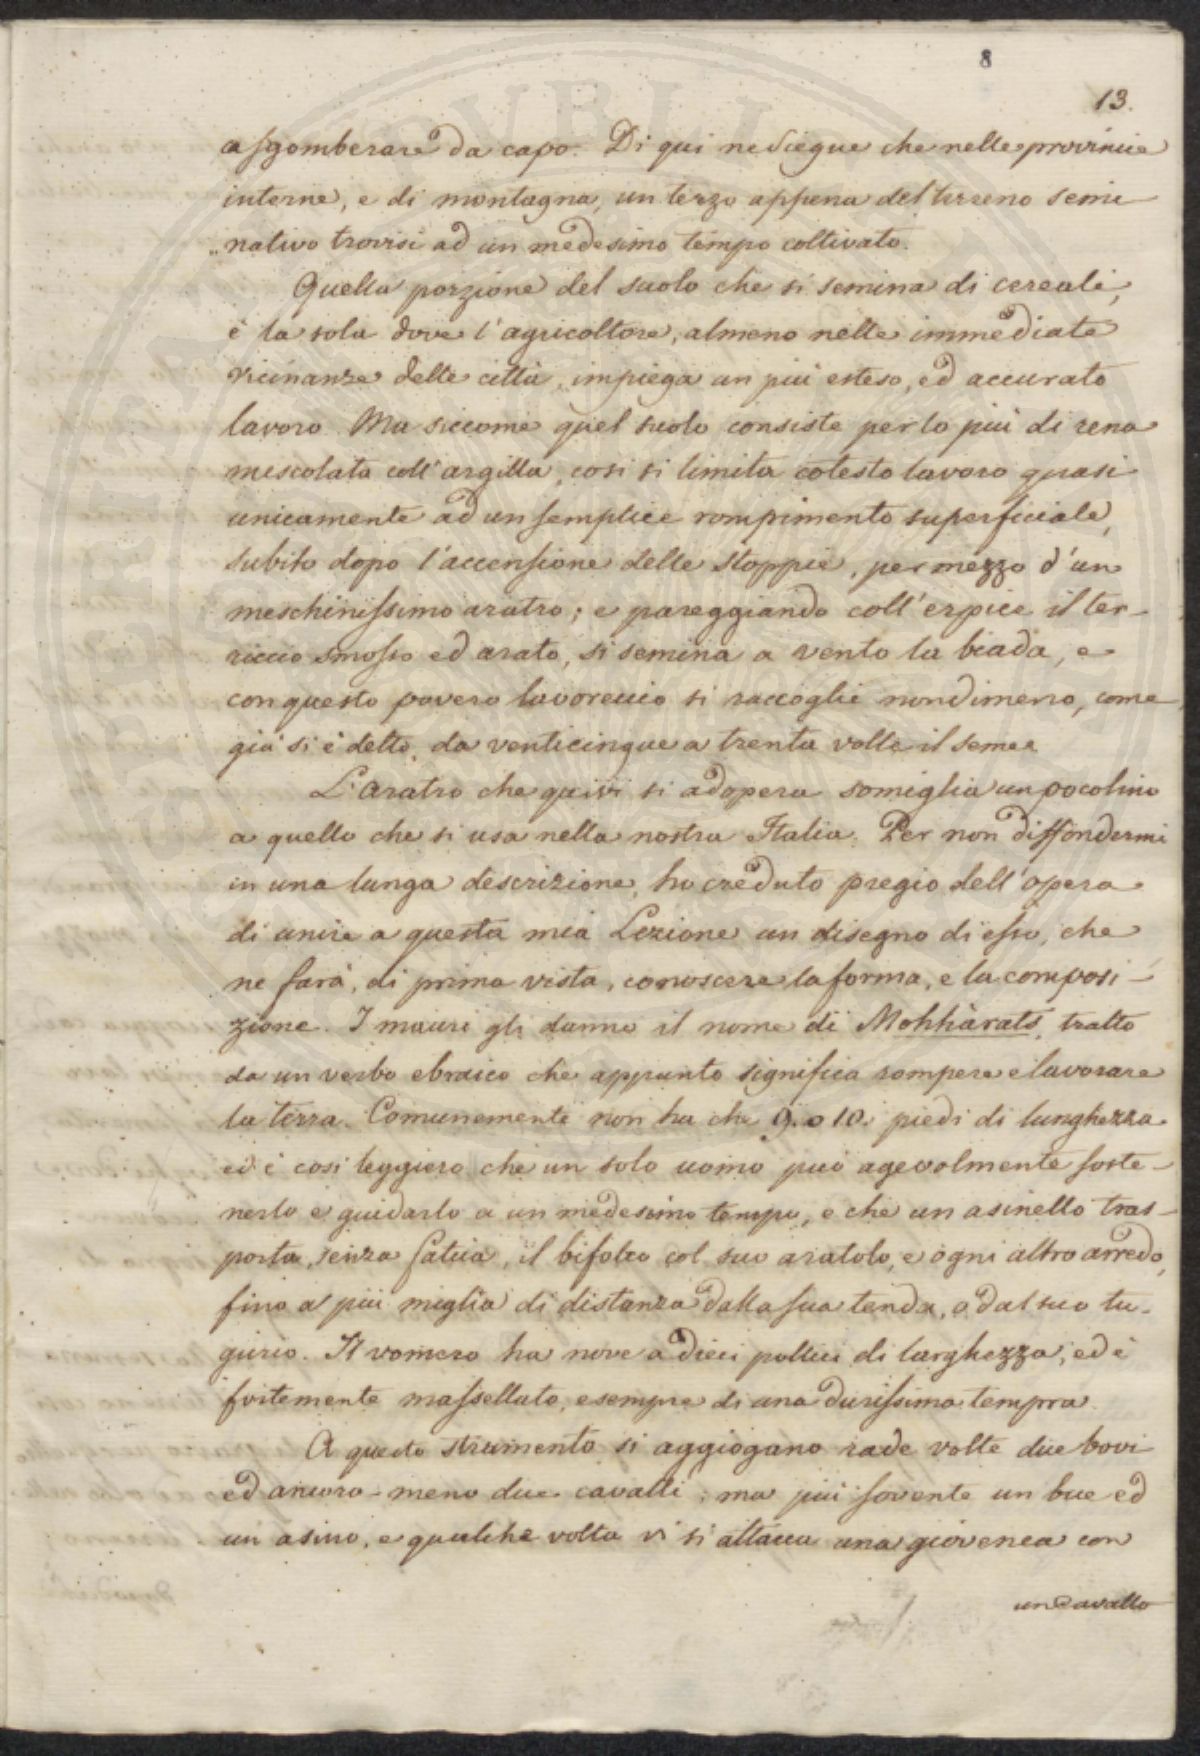 8
13.
a sgomberare da capo. Di qui ne siegue che nelle provincie
interne, e di montagna, un terzo appena del terreno semi-
nativo trovisi ad un medesimo tempo coltivato.
Quella porzione del suolo che si semina di cereali,
è la sola dove l'agricoltore, almeno nelle immediate
vicinanze delle città, impiega un più esteso, ed accurato
lavoro. Ma siccome quel suolo consiste per lo più di rena
mescolata coll'argilla, così si limita cotesto lavoro quasi
unicamente ad un semplice rompimento superficiale,
subito dopo l'accensione delle stoppie, per mezzo d'un
meschinissimo aratro; e pareggiando coll'erpice il ter-
riccio smosso ed arato, si semina a vento la biada, e
con questo povero lavoreccio si raccoglie nondimeno, come
già si è detto, da venticinque a trenta volte il seme.
L'aratro che quivi si adopera somiglia un pocolino
a quello che si usa nella nostra Italia. Per non diffondermi
in una lunga descrizione, ho creduto pregio dell'opera
di unire a questa mia Lezione un disegno di esso, che
ne farà, di prima vista, conoscere la forma, e la composi-
zione. I mauri gli danno il nome di Mohhàrats, tratto
da un verbo ebraico che appunto significa rompere e lavorare
la terra. Comunemente non ha che 9. o 10. piedi di lunghezza
ed è così leggiero che un solo uomo può agevolmente soste-
nerlo e guidarlo a un medesimo tempo, e che un asinello tras-
porta, senza fatica, il bifolco col suo aratolo, e ogni altro arredo,
fino a più miglia di distanza dalla sua tenda, o dal suo tu-
gurio. Il vomero ha nove a dieci pollici di larghezza, ed è
fortemente massellato, e sempre di una durissima tempra.
A questo strumento si aggiogano rade volte due bovi
ed ancora meno due cavalli; ma più sovente un bue ed
un asino, e qualche volta vi si attacca una giovenca con
un cavallo